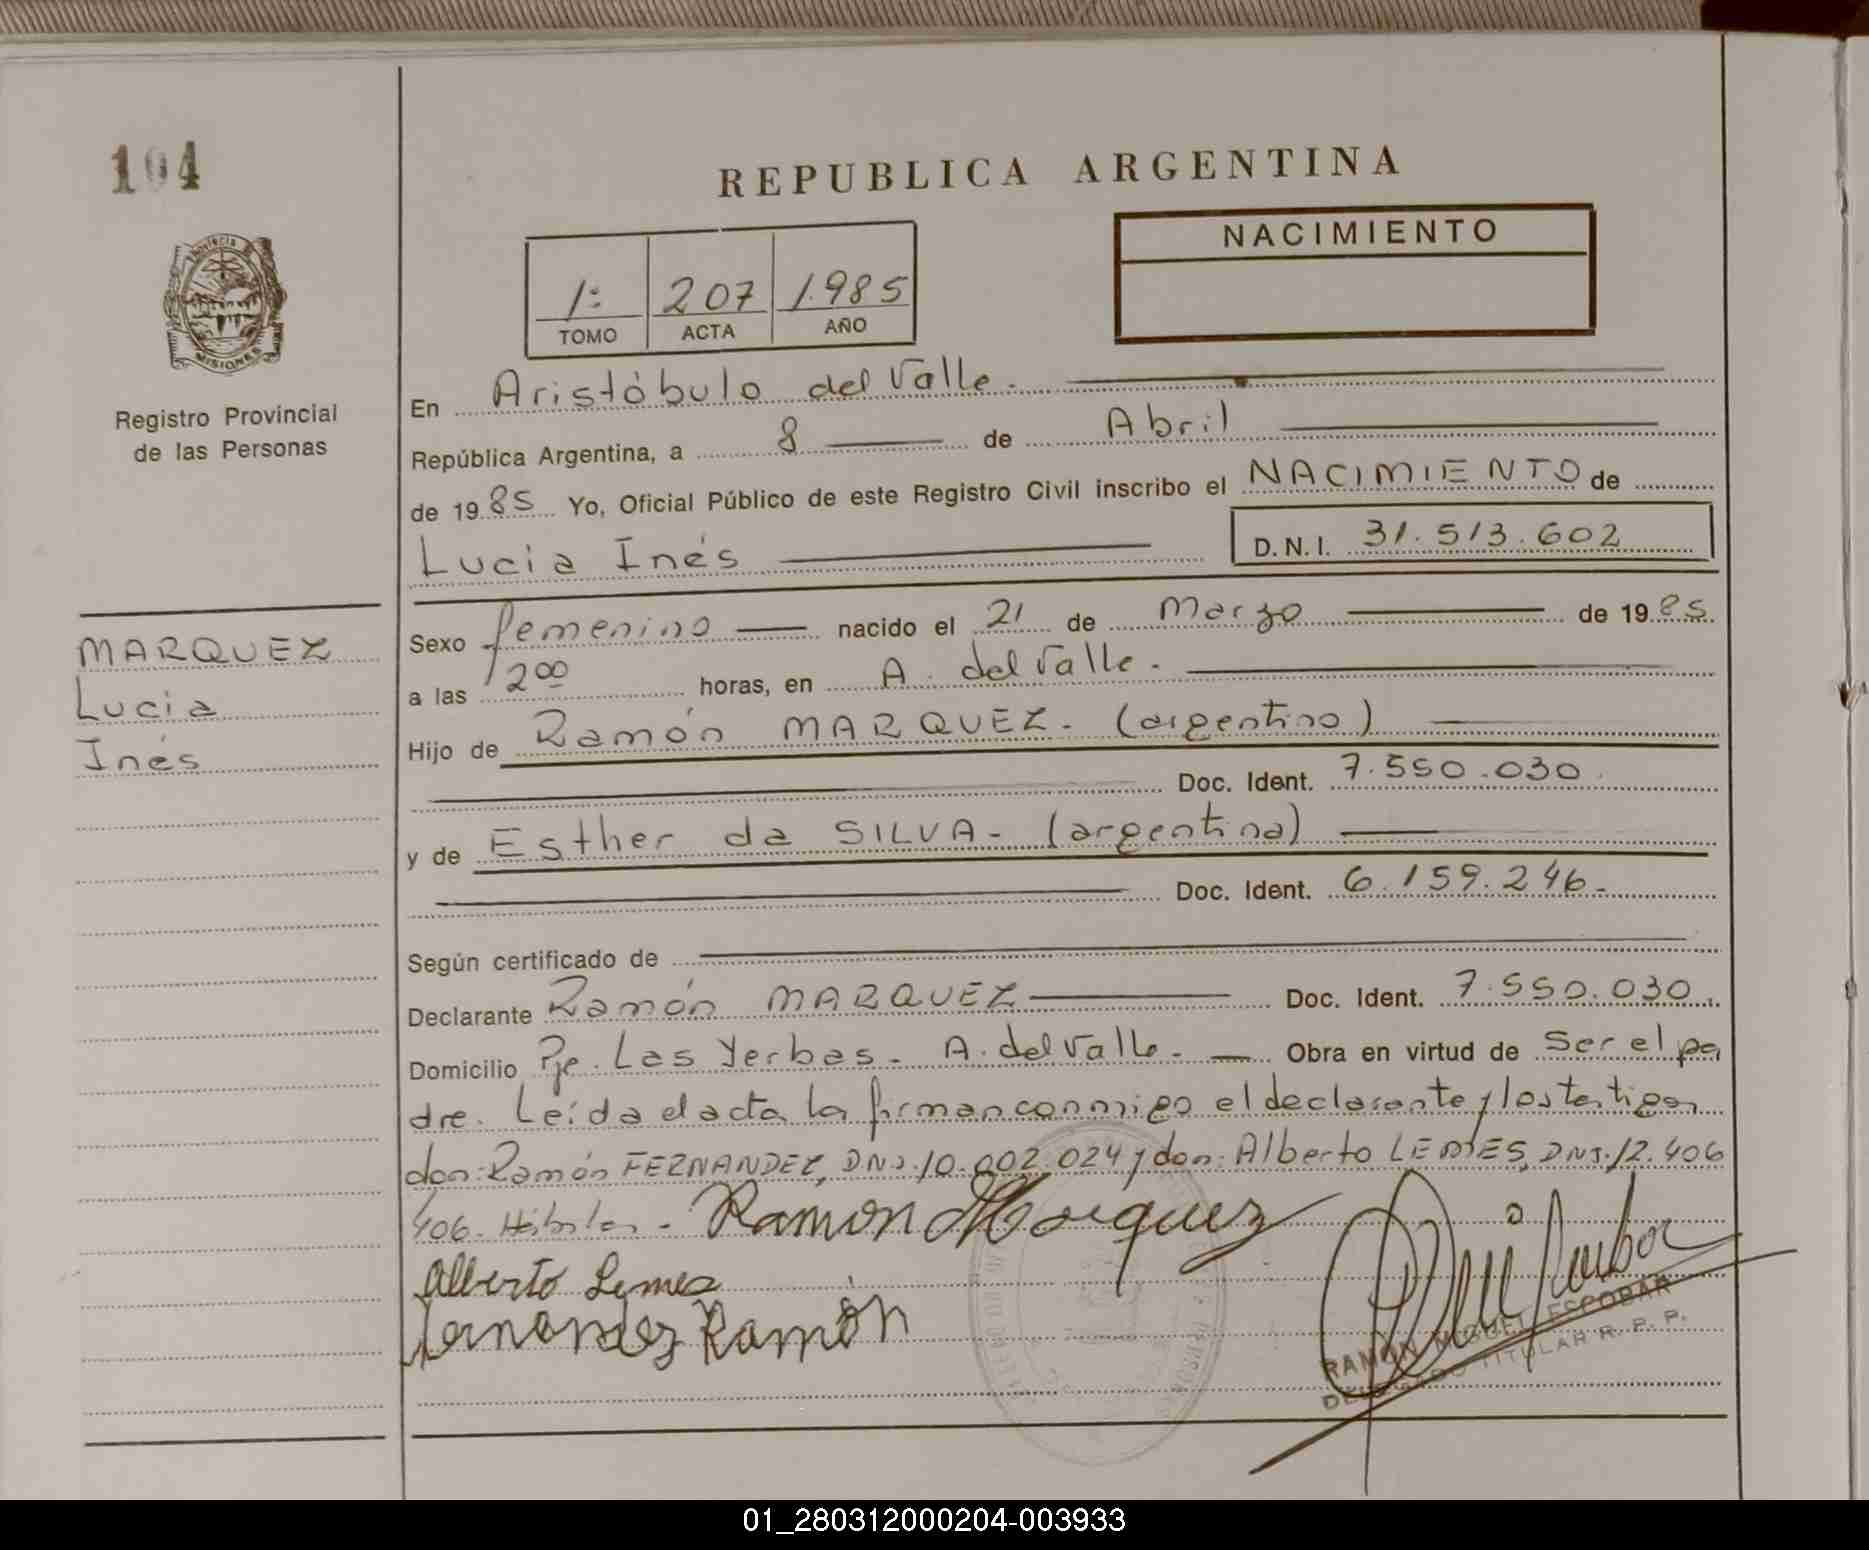 104
REPUBLICA ARGENTINA
NACIMIENTO
1: 207 1.985
TOMO ACTA AÑO
Provincia de
MISIONES
Registro Provincial
de las Personas
En Aristóbulo del Valle.
República Argentina, a 8 de Abril
de 1985 Yo, Oficial Público de este Registro Civil inscribo el NACIMIENTO de
Lucia Inés D.N.I. 31.513.602
MARQUEZ
Lucia
Inés
Sexo femenino nacido el 21 de Marzo de 1985.
a las 12 00 horas, en A. del Valle.
Hijo de Ramón MARQUEZ. (argentino)
Doc. Ident. 7.550.030.
y de Esther da SILVA- (argentina)
Doc. Ident. 6.159.246-
Según certificado de
Declarante Ramón MARQUEZ Doc. Ident. 7.550.030.
Domicilio Pje. Las Yerbas. A. del Valle. Obra en virtud de Ser el pa
dre. Leída el acta la firman conmigo el declarante y los testigos
don: Ramón FERNANDEZ, DNI. 10.002.024 y don: Alberto LEMES, DNI. 12.406
406. Hábiles. Ramon Marquez
Alberto Lemes
Fernandez Ramón
RAMON MIGUEL ESCOBAR
DELEGADO TITULAR R. P. P.
01_280312000204-003933